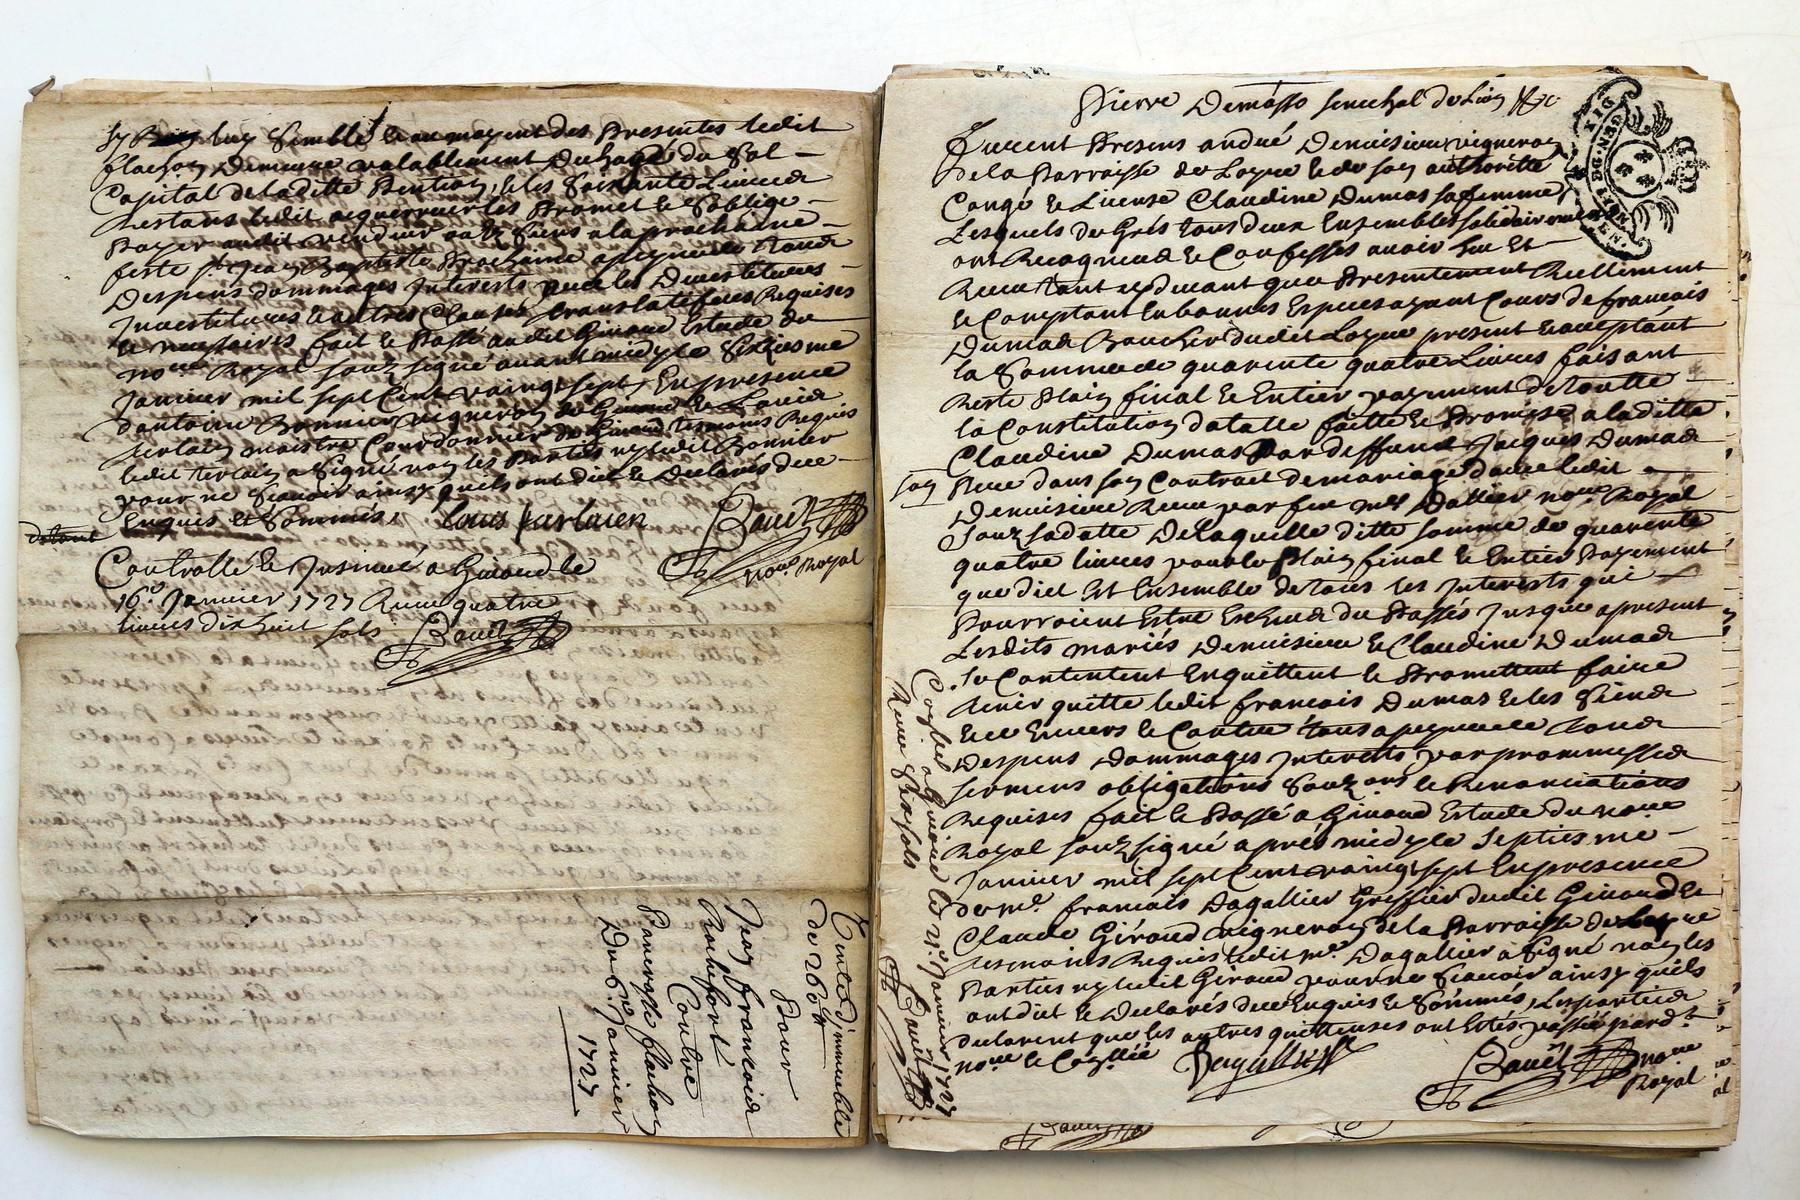 luy semble le au moyent des presentes ledit
flachoy demeure valablement du sol
Capital de laditte Pention, les soixante Livres
Restans ledit acquerreur les Promet le soblige
Payer audit vendeur ou ez siens a la prochaine
feste st Jean Baptiste Prochaine a peyne de tous
Despens dommages Interests avec les Devestitures
Investitures le autres Clauses translatives Requises
le necessaires fait le Passé audit Givord Estude du
nore Royal souzsigné avant midy le Sixiesme
Janvier mil sept Cent vaingt sept, En presence
dantoine Bonnier vigneron de Givord le Louis
terlain maistre Courdonnier de Givord tesmoins Requis
ledit terlain a signé non les Parties ny ledit Bonnier
pour ne scavoir ainsy quils ont dict le Declarés de ce
Enquis et Sommis,
Bouët
nore Royal
Controllé le Insinué a Givord le
16e Janvier 1727 Receu quatre
livres dix huit sols
Bouët
Vente dimmeuble
de 260 ₶
Pour
Jean francois
Rochefort
Contre
flachoy
Du 6me Janvier
1727
Pierre Demasso senechal de Lion &c
furent Presens andré Denuisieu vigneron
De la Parroisse de Loyre le de son authorité
Congé le License Claudine Dumas sa femme
Lesquels de Grés tous deux Ensembles solidairement
ont Recogneus le Confesses avoir heu Et
Receu tant cy devant que Presentement Reellement
le Comptant En bonnes Especes ayant Cours de francois
Dumas Boucher dudit Loyre present le acceptant
la Somme de quarente quatre Livres faisant
Reste Plain final le Entier payement de toutte
la Constitution dotalle faitte le Promise a laditte
Claudine Dumas Par deffunct Jacques Dumas
son Pere dans son Contract de mariage avec ledit
Denuisieu Receu par feu me Dallier nore Royal
Souz sa datte De laquelle ditte somme de quarente
quatre livres pour le Plain final le Entier Payement
que dict Est Ensemble de tous les Interests qui
Pourroient Estre Escheus du Passés Jusque a present
Lesdits mariés Denuisieu le Claudine Dumas
se Contentent Enquittent le Promettent faire
tenir quitte ledit francois Dumas le les Siens
Envers le Contre tous a peyne de tous
Despens dommages Interests par prommesses
sermens obligations souz ons le Renonciations
Requises fait le Passé a Givord Estude du nore
Royal souzsigné aprés midy le Septiesme
Janvier mil sept Cent vaingt sept En presence
de me francois Dagallier Greffier dudit Givord le
Claude Giroud vigneron de la Parroisse de Loyre
tesmoins Requis ledit me Dagallier a signé non les
Parties ny ledit Giroud pour ne scavoir ainsy quils
ont dict le Declarés de ce Enquis le Sommés, Les parties
declarent que les autres quittances ont Estés passés pard.t
nore
Dagallier
Bouët nore
Royal
Con.lé a Givord le Janvier 1727
Receu six sols
Bouët